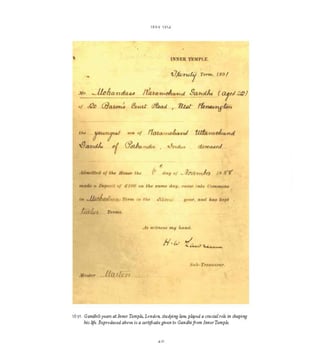 INNER TEMPLE.
Trinity Term, 1891
Mr. Mohandass Karamchand Gandhi (aged 22)
of 20 Baron's Court Road, West Kensington
the youngest son of Karamchand Uttamchand
Gandhi of Porbandar, India deceased
Admitted of the House the 6 day of November 1888
made a Deposit of £100 on the same day, came into Commons
in Michaelmas Term in the above year, and has kept
twelve Terms.
As witness my hand.
H. W. Lawrence
Sub-Treasurer.
Master
Gandhi's years at Inner Temple, London, studying law, played a crucial role in shaping
his life. Reproduced above is a certificate given to Gandhi from Inner Temple